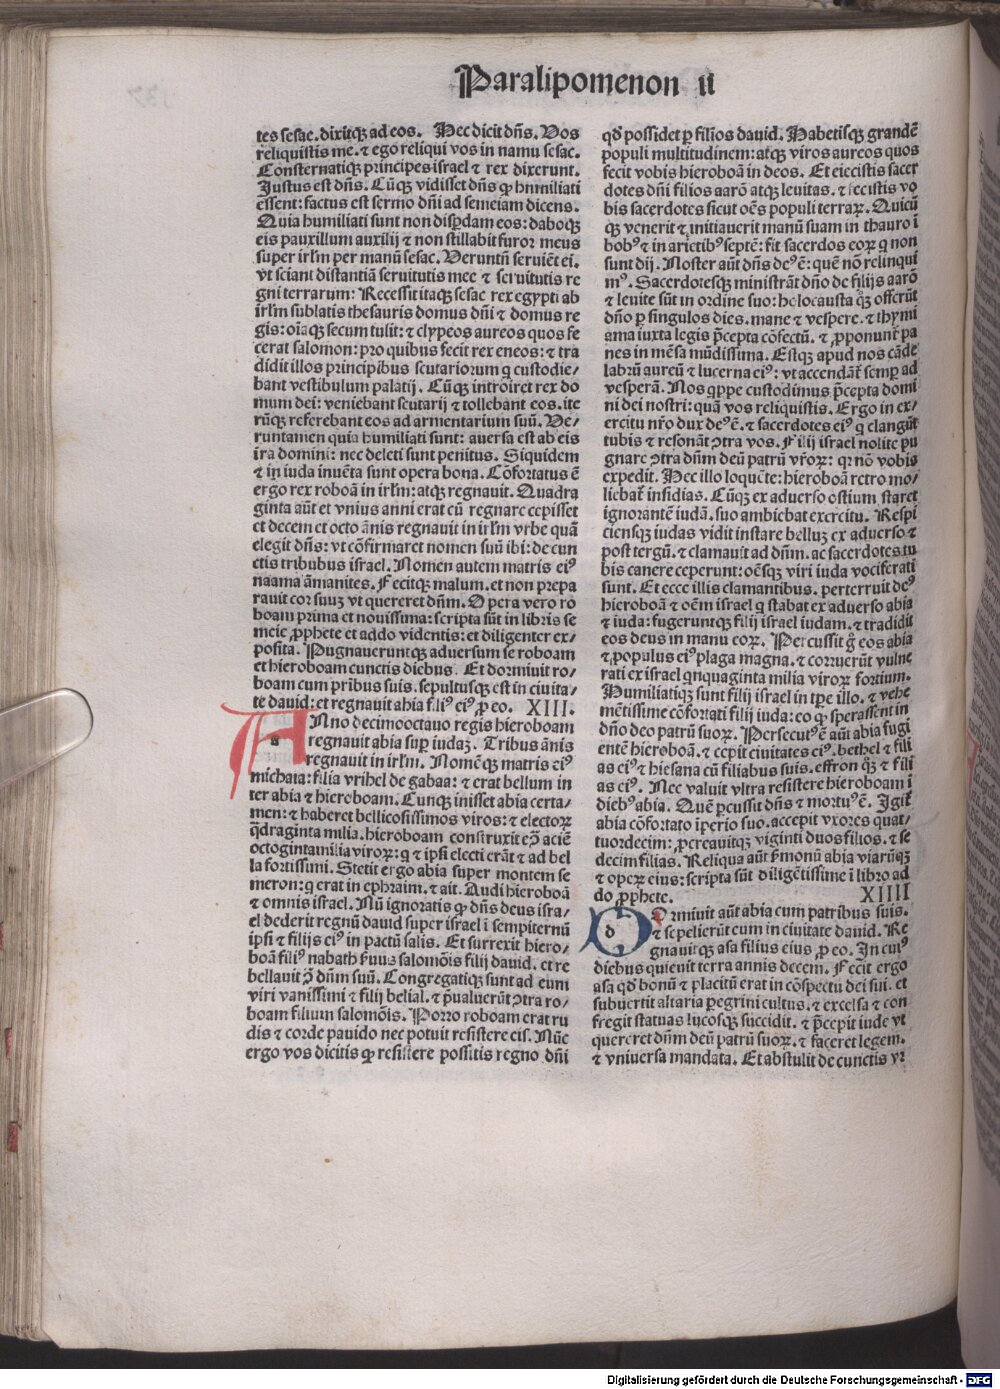 Paralipomenon ii
tes sesac. dixitqꝫ ad eos. Hec dicit dñs. Vos
reliquistis me. ⁊ ego reliqui vos in namu sesac.
Consternatiqꝫ principes israel ⁊ rex dixerunt.
Justus est dñs. Cūqꝫ vidisset dñs ꝙ humiliati
essent: factus est sermo dñi ad semeiam dicens.
Quia humiliati sunt non disꝑdam eos: daboqꝫ
eis pauxillum auxilij ⁊ non stillabit furor meus
super irlm per manū sesac. Veruntñ seruiēt ei.
vt sciant distantiā seruitutis mee ⁊ seruitutis re
gni terrarum: Recessit itaqꝫ sesac rex egypti ab
irlm sublatis thesauris domus dñi ⁊ domus re
gis: oīaqꝫ secum tulit: ⁊ clypeos aureos quos fe
cerat salomon: pro quibus fecit rex eneos: ⁊ tra
didit illos principibus scutariorum q custodie/
bant vestibulum palatij. Cūqꝫ introiret rex do
mum dei: veniebant scutarij ⁊ tollebant eos. ite
rūqꝫ referebant eos ad armentarium suū. Ve/
runtamen quia humiliati sunt: auersa est ab eis
ira domini: nec deleti sunt penitus. Siquidem
⁊ in iuda inuēta sunt opera bona. Cōfortatus ē
ergo rex roboā in irlm: atqꝫ regnauit. Quadra
ginta aūt et vnius anni erat cū regnare cepisset
et decem et octo ānis regnauit in irlm vrbe quā
elegit dñs: vt cōfirmaret nomen suū ibi: de cun
ctis tribubus israel. Nomen autem matris eiꝰ
naama āmanites. Fecitqꝫ malum. et non prepa
rauit cor suuꝫ vt quereret dñm. Opera vero ro
boam prima et nouissima: scripta sūt in libris se
meie ꝓphete et addo videntis: et diligenter ex/
posita. Pugnaueruntqꝫ aduersum se roboam
et hieroboam cunctis diebus. Et dormiuit ro/
boam cum pr̄ibus suis. sepultusqꝫ est in ciuita/
te dauid: et regnauit abia filiꝰ eiꝰ ꝓ eo. XIII.
Anno decimooctauo regis hieroboam
regnauit abia suꝑ iudaꝫ. Tribus ānis
regnauit in irlm. Nomēqꝫ matris eiꝰ
michaia: filia vrihel de gabaa: ⁊ erat bellum in
ter abia ⁊ hieroboam. Cunqꝫ inisset abia certa/
men: ⁊ haberet bellicosissimos viros: ⁊ electoꝝ
q̄draginta milia. hieroboam construxit eↄ̄ aciē
octogintamilia viroꝝ: q ⁊ ipsi electi erāt ⁊ ad bel
la fortissimi. Stetit ergo abia super montem se
meron: q erat in ephraim. ⁊ ait. Audi hieroboā
⁊ omnis israel. Nū ignoratis ꝙ dñs deus isra/
el dederit regnū dauid super israel ī sempiternū
ipsi ⁊ filijs eiꝰ in pactū salis. Et surrexit hiero/
boā filiꝰ nabath ẜuus salomōis filij dauid. et re
bellauit ↄ̄ dñm suū. Congregatiqꝫ sunt ad eum
viri vanissimi ⁊ filij belial. ⁊ p̄ualuerūt ↄtra ro/
boam filium salomōis. Porro roboam erat ru
dis ⁊ corde pauido nec potuit resistere eis. Nūc
ergo vos dicitis ꝙ resistere possitis regno dñi
qd̄ possidet ꝑ filios dauid. Habetisqꝫ grandē
populi multitudinem: atqꝫ viros aureos quos
fecit vobis hieroboā in deos. Et eiecistis sacer
dotes dñi filios aarō atqꝫ leuitas. ⁊ fecistis vo
bis sacerdotes sicut oēs populi terraꝝ. Quicū
qꝫ venerit ⁊ initiauerit manū suam in thauro ī
bobꝰ ⁊ in arietibꝰ septē: fit sacerdos eoꝝ q non
sunt dij. Noster aūt dñs deꝰ ē: quē nō relinqui
mꝰ. Sacerdotesqꝫ ministrāt dño de filijs aarō
⁊ leuite sūt in ordine suo: holocausta qꝫ offerūt
dño ꝑ singulos dies. mane ⁊ vespere. ⁊ thymi
ama iuxta legis p̄cepta cōfectū. ⁊ ꝓponunt̄ pa
nes in mēsa mūdissima. Estqꝫ apud nos cāde
labrū aureū ⁊ lucerna eiꝰ: vt accendāt̄ semꝑ ad
vesperā. Nos qppe custodimus p̄cepta domi
ni dei nostri: quā vos reliquistis. Ergo in ex/
ercitu nr̄o dux deꝰ ē. ⁊ sacerdotes eiꝰ q clangūt
tubis ⁊ resonāt ↄtra vos. Filij israel nolite pu
gnare ↄtra dñm deū patrū vr̄oꝝ: qꝛ nō vobis
expedit. Hec illo loquēte: hieroboā retro mo/
liebat̄ insidias. Cūqꝫ ex aduerso ostium staret
ignorantē iudā. suo ambiebat exercitu. Respi
ciensqꝫ iudas vidit instare belluꝫ ex aduerso ⁊
post tergū. ⁊ clamauit ad dñm. ac sacerdotes tu
bis canere ceperunt: oēsqꝫ viri iuda vociferati
sunt. Et ecce illis clamantibus. perterruit deꝰ
hieroboā ⁊ oēm israel q stabat ex aduerso abia
⁊ iuda: fugeruntqꝫ filij israel iudam. ⁊ tradidit
eos deus in manu eoꝝ. Percussit g̊ eos abia
⁊ populus eiꝰ plaga magna. ⁊ corruerūt vulne
rati ex israel qnquaginta milia viroꝝ fortium.
Humiliatiqꝫ sunt filij israel in tꝑe illo. ⁊ vehe
mētissime cōfortati filij iuda: eo ꝙ sperassent in
dño deo patrū suoꝝ. Persecutꝰ ē aūt abia fugi
entē hieroboā. ⁊ cepit ciuitates eiꝰ. bethel ⁊ fili
as eiꝰ ⁊ hiesana cū filiabus suis. effron qꝫ ⁊ fili
as eiꝰ. Nec valuit vltra resistere hieroboam ī
diebꝰ abia. Quē ꝑcussit dñs ⁊ mortuꝰ ē. Igit̄
abia cōfortato īperio suo. accepit vxores quat/
tuordecim: ꝓcreauitqꝫ viginti duos filios. ⁊ se
decim filias. Reliqua aūt ẜmonū abia viarūqꝫ
⁊ operꝝ eius: scripta sūt diligētissime ī libro ad
do ꝓphete. XIIII
Dormiuit aūt abia cum patribus suis.
⁊ sepelierūt eum in ciuitate dauid. Re
gnauitqꝫ asa filius eius ꝓ eo. In cuiꝰ
diebus quieuit terra annis decem. Fecit ergo
asa qd̄ bonū ⁊ placitū erat in cōspectu dei sui. et
subuertit altaria ꝑegrini cultus. ⁊ excelsa ⁊ con
fregit statuas lucosqꝫ succidit. ⁊ p̄cepit iude vt
quereret dñm deū patrū suoꝝ. ⁊ faceret legem.
⁊ vniuersa mandata. Et abstulit de cunctis vr
Digitalisierung gefördert durch die Deutsche Forschungsgemeinschaft - DFG